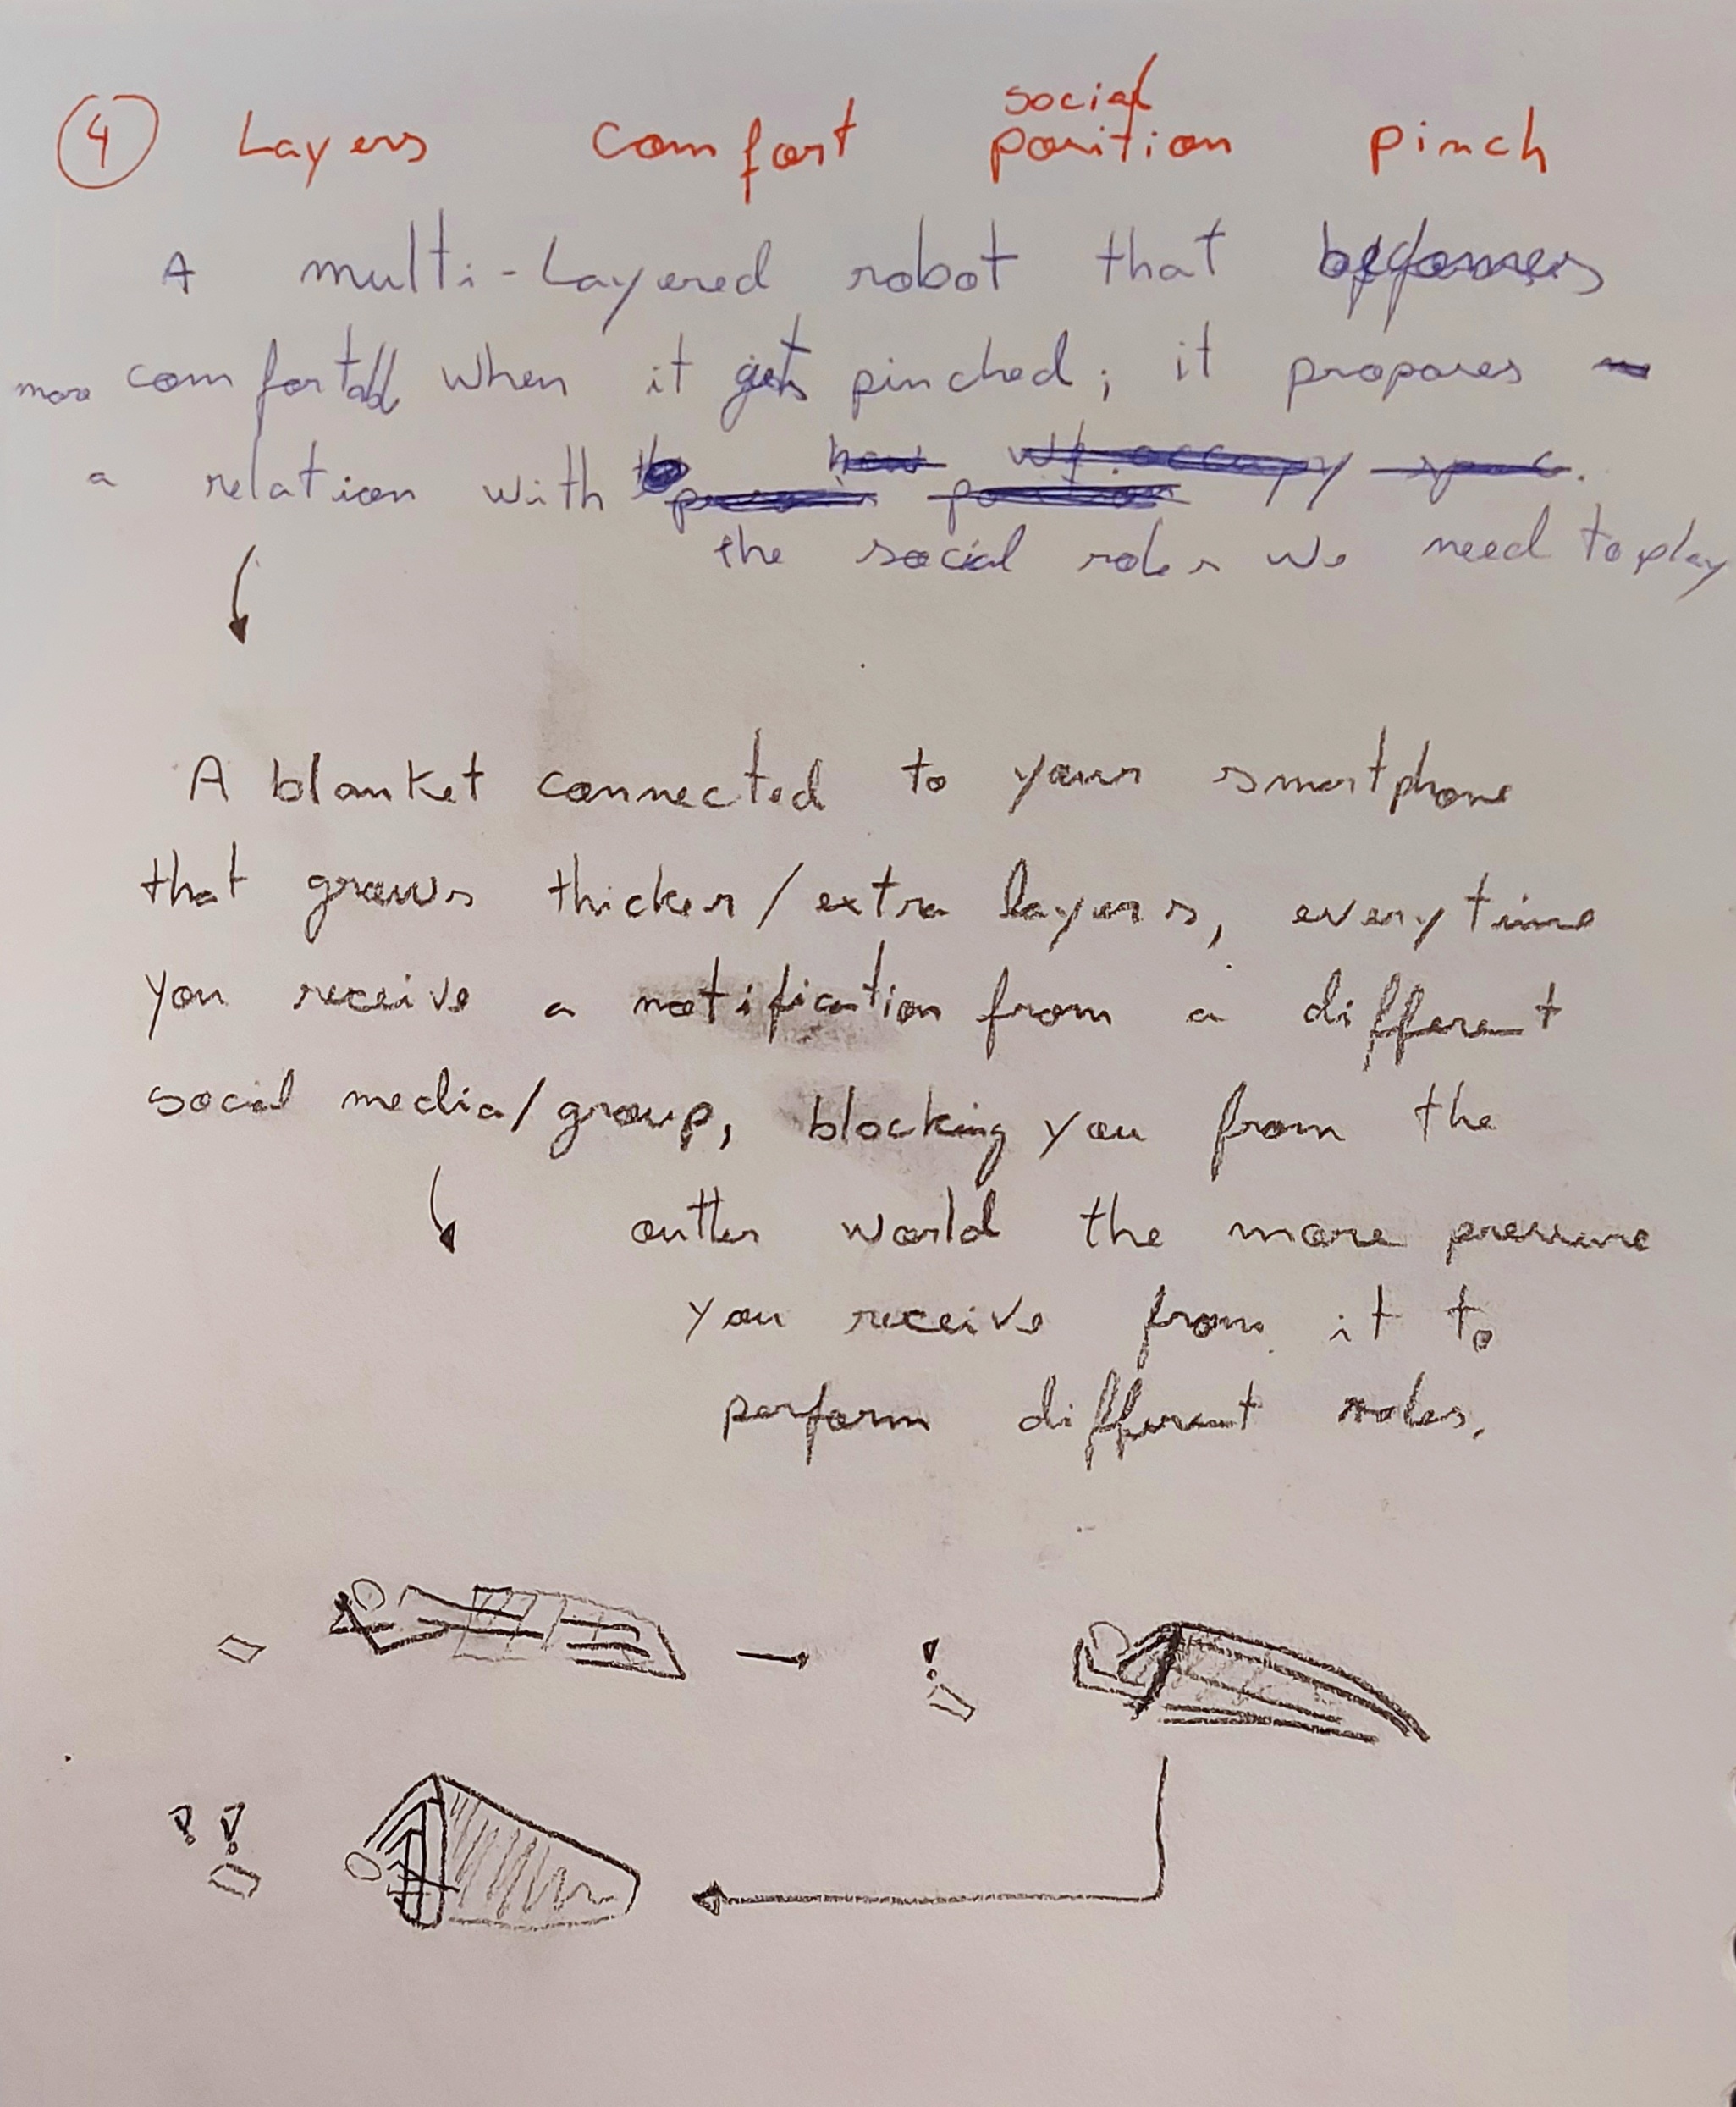 4 Layers comfort social position pinch
A multi-Layered robot that becomes
more comfortable when it gets pinched; it proposes
a relation with how we occupy spac.
position
the social roles we need to play
A blanket connected to your smartphone
that grows thicker/extra layers, everytime
you receive a notification from a different
social media/group, blocking you from the
outter world the more pressure
you receive from it to
perform different roles.
!
! !